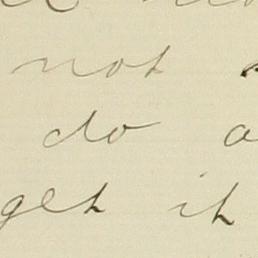 not
do a
get it